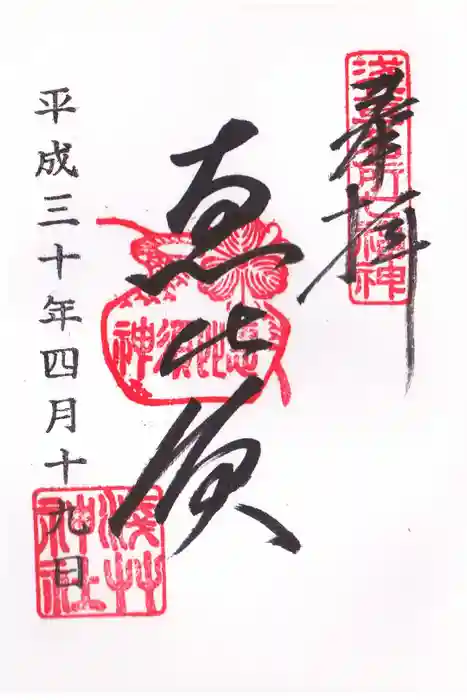 浅草名所七福神
奉拝
恵比須
恵比須神
平成三十年四月十九日
浅草神社